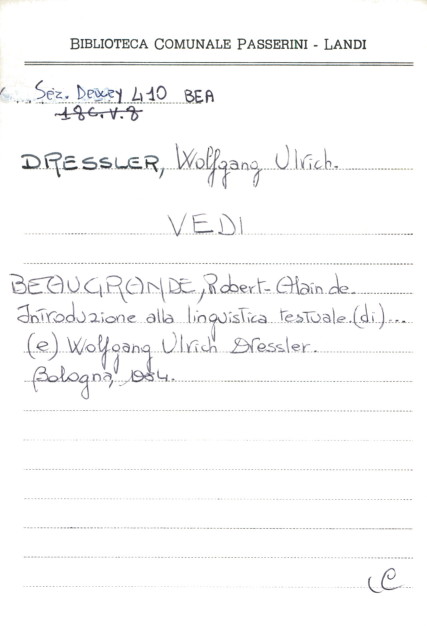 BIBLIOTECA COMUNALE PASSERINI - LANDI
Sez. Dewey 410 BEA
186.V.8
DRESSLER, Wolfgang Ulrich.
VEDI
BEAUGRANDE, Robert-Alain de.
Introduzione alla linguistica testuale.(di)...
(e) Wolfgang Ulrich Dressler.
Bologna, 1984.